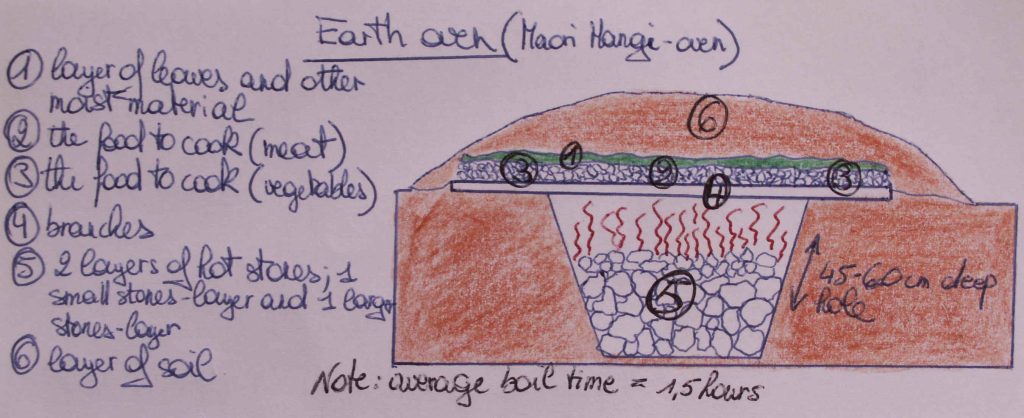 Earth oven (Maori Hangi-oven)
① layer of leaves and other
moist material
② the food to cook (meat)
③ the food to cook (vegetables)
④ branches
⑤ 2 layers of hot stones; 1
small stones-layer and 1 large
stones-layer
⑥ layer of soil
6
1
3
2
3
4
5
45-60 cm deep
hole
Note: average boil time = 1,5 hours